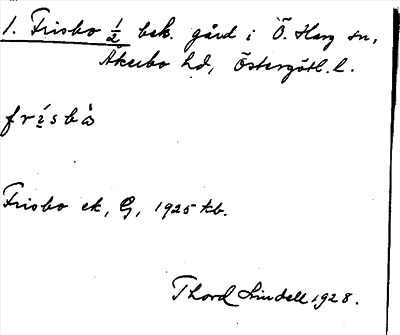 1. Frisbo 1/2 bek. gård i Ö. Harg sn,
Åkerbo hd, Östergötl. l.
frisbo
Frisbo ek, G, 1925 kb.
Thord Lindell 1928.